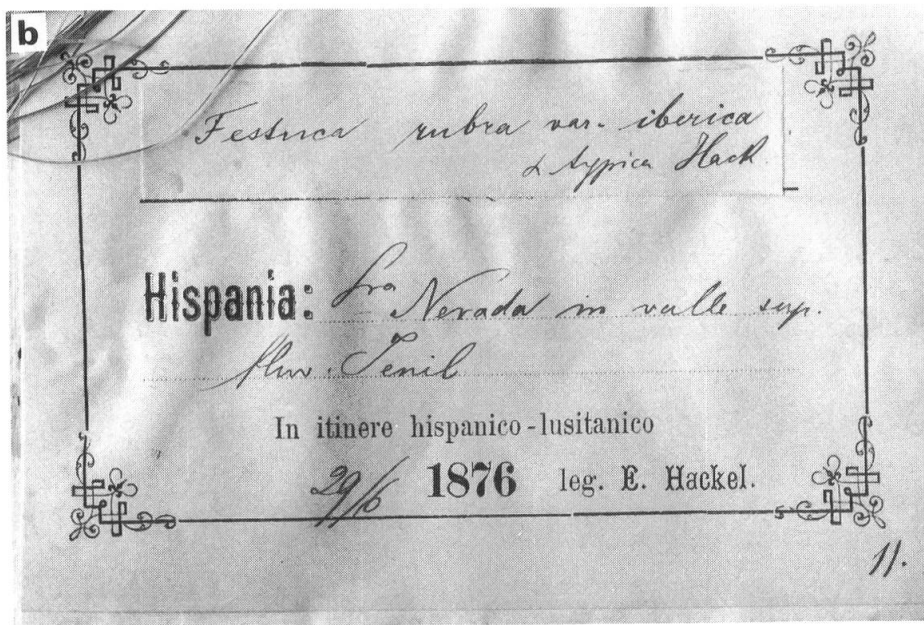 b
Festuca rubra var. iberica
α typica Hack.
Hispania: Sra Nevada in valle sup.
fluv. Jenil
In itinere hispanico-lusitanico
29/6 1876 leg. E. Hackel.
11.